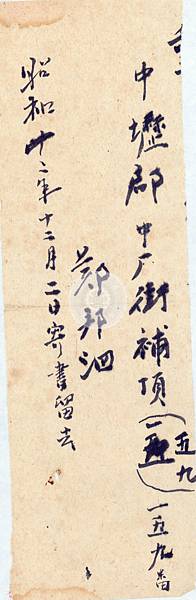 中壢郡中厂街補頂(一五九 一五九番
鄭邦泗
昭和十二年十二月二日寄書留去